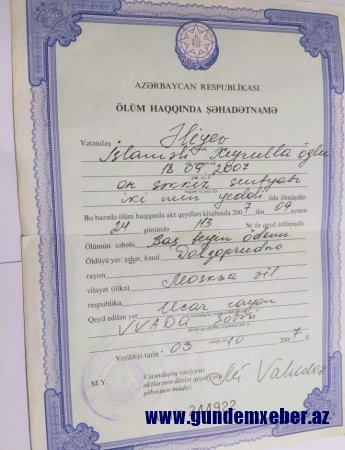 AZƏRBAYCAN RESPUBLİKASI
ÖLÜM HAQQINDA ŞƏHADƏTNAMƏ
Vətəndaş Əliyev
Xeyrulla oğlu
18.09.2007
on səkkiz sentyabr
iki min yeddi ildə ölmüşdür.
Bu barədə ölüm haqqında akt qeydləri kitabında 2007 ildə 09 ayının
24 günündə 113 № ilə qeyd edilmişdir.
Ölümün səbəbi Baş beyin ödemi
Öldüyü yer: şəhər, kənd Dolqoprudno
rayon
vilayət (ölkə) Москва
respublika
Qeyd edilən yer Ucar rayon
VVADQ şöbəsi
Verildiyi tarix " 03 " 10 2007
M.Y.
Vətəndaşlıq vəziyyəti
aktlarının dövlət qeydiyyatı
şöbəsinin müdiri
www.gundemxeber.az